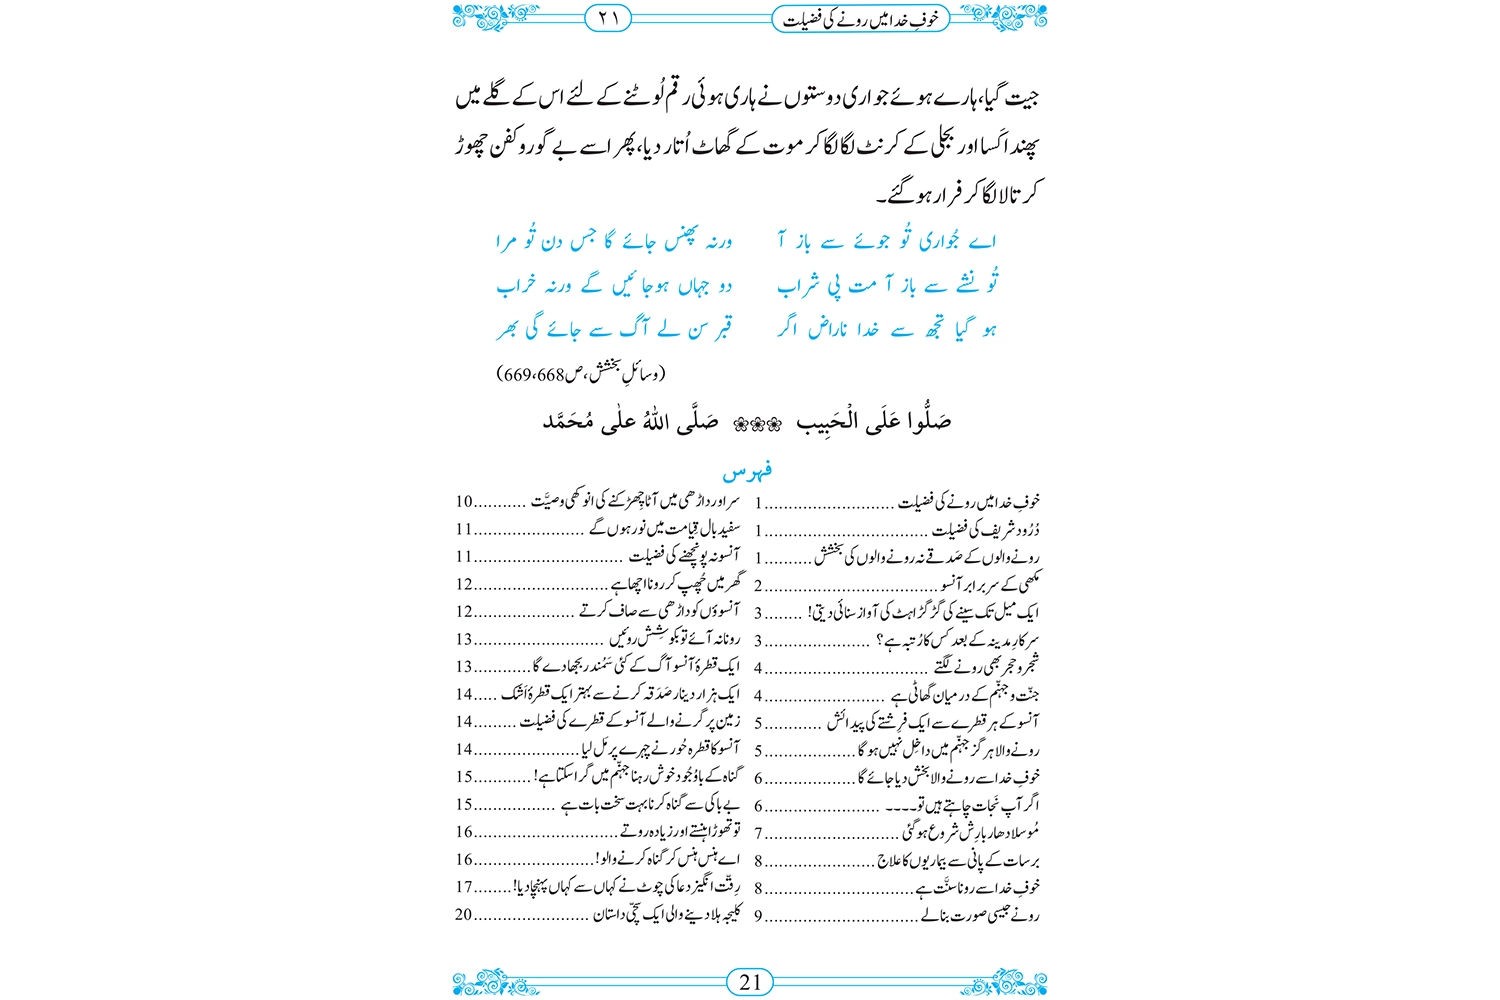 خوفِ خدا میں رونے کی فضیلت
۲۱
جیت گیا، ہارے ہوئے جواری دوستوں نے ہاری ہوئی رقم لُوٹنے کے لئے اس کے گلے میں
پھندا کَسا اور بجلی کے کرنٹ لگا لگا کر موت کے گھاٹ اُتار دیا، پھر اسے بے گور و کفن چھوڑ
کر تالا لگا کر فرار ہوگئے۔
اے جُواری تُو جوئے سے باز آ ورنہ پھنس جائے گا جس دن تُو مرا
تُو نشے سے باز آ مت پی شراب دو جہاں ہوجائیں گے ورنہ خراب
ہو گیا تجھ سے خدا ناراض اگر قبر سن لے آگ سے جائے گی بھر
(وسائلِ بخشش، ص668،669)
صَلُّوا عَلَی الْحَبِیب ❀❀❀ صَلَّی اللهُ علٰی مُحَمَّد
فہرس
خوفِ خدا میں رونے کی فضیلت ........................... 1
دُرُود شریف کی فضیلت .................................. 1
رونے والوں کے صَدقے نہ رونے والوں کی بخشش .......... 1
مکھی کے سر برابر آنسو .................................... 2
ایک میل تک سینے کی گڑگڑاہٹ کی آواز سنائی دیتی! ........ 3
سرکارِ مدینہ کے بعد کس کا رُتبہ ہے؟ ...................... 3
شجر و حجر بھی رونے لگتے .................................. 4
جنّت و جہنّم کے درمیان گھاٹی ہے ......................... 4
آنسو کے ہر قطرے سے ایک فرِشتے کی پیدائش ............ 5
رونے والا ہرگز جہنّم میں داخِل نہیں ہوگا ................... 5
خوفِ خدا سے رونے والا بخش دیا جائے گا ................... 6
اگر آپ نَجات چاہتے ہیں تو۔۔۔۔ ........................ 6
مُوسلادھار بارِش شروع ہوگئی ............................ 7
برسات کے پانی سے بیماریوں کا علاج ....................... 8
خوفِ خدا سے رونا سنَّت ہے ............................... 8
رونے جیسی صورت بنالے ................................ 9
سر اور داڑھی میں آٹا چِھڑکنے کی انوکھی وصیَّت ........... 10
سفید بال قِیامت میں نور ہوں گے ....................... 11
آنسو نہ پونچھنے کی فضیلت ................................ 11
گھر میں چُھپ کر رونا اچھا ہے ............................ 12
آنسوؤں کو داڑھی سے صاف کرتے ..................... 12
رونا نہ آئے تو بکوشِش روئیں ........................... 13
ایک قطرۂ آنسو آگ کے کئی سَمُندر بجھا دے گا ............ 13
ایک ہزار دینار صَدَقہ کرنے سے بہتر ایک قطرۂ اَشک ..... 14
زمین پر گرنے والے آنسو کے قطرے کی فضیلت ......... 14
آنسو کا قطرہ حُور نے چِہرے پر مَل لیا ...................... 14
گناہ کے باوُجُود خوش رہنا جہنّم میں گراسکتا ہے! ............ 15
بے باکی سے گناہ کرنا بہت سخت بات ہے ................. 15
تو تھوڑا ہنستے اور زیادہ روتے .............................. 16
اے ہنس ہنس کر گناہ کرنے والو! ......................... 16
رِقّت انگیز دعا کی چوٹ نے کہاں سے کہاں پہنچا دیا! ........ 17
کلیجہ ہلا دینے والی ایک سچّی داستان ........................ 20
21